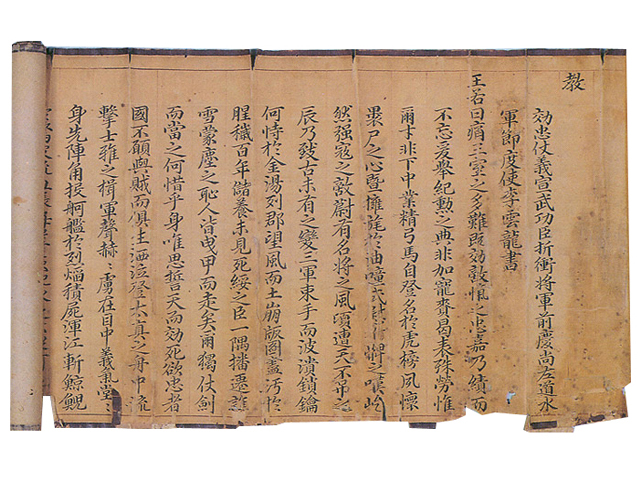 教
効忠仗義宣武功臣折衝將軍前慶尚左道水
軍節度使李雲龍書
王若曰痛王室之多難旣効敵愾之忠嘉乃績而
不忘爰舉紀勳之典非加寵賚曷表殊勞惟
爾才非下中業精弓馬自登名於虎榜夙懷
裹尸之心曁擁旄於油幢式 將之 屹
然强寇之敵蔚有名將之風頃遭天不吊之
辰乃致古未有之變三軍束手而波潰鎖鑰
何恃於金湯列郡望風而土崩版圖盡汚於
腥穢百年儲養未見死綏之臣一隅播遷誰
雪蒙塵之恥人皆曳甲而走矣爾獨仗劍
而當之何惜乎身唯思誓天而効死欲忠者
國不顧與賊而俱生洒泣登太眞之舟中流
擊士雅之楫軍聲赫〻虜在目中義氣堂〻
身先陣角 舸艦於烈焰積屍渾江斬鯨鯢